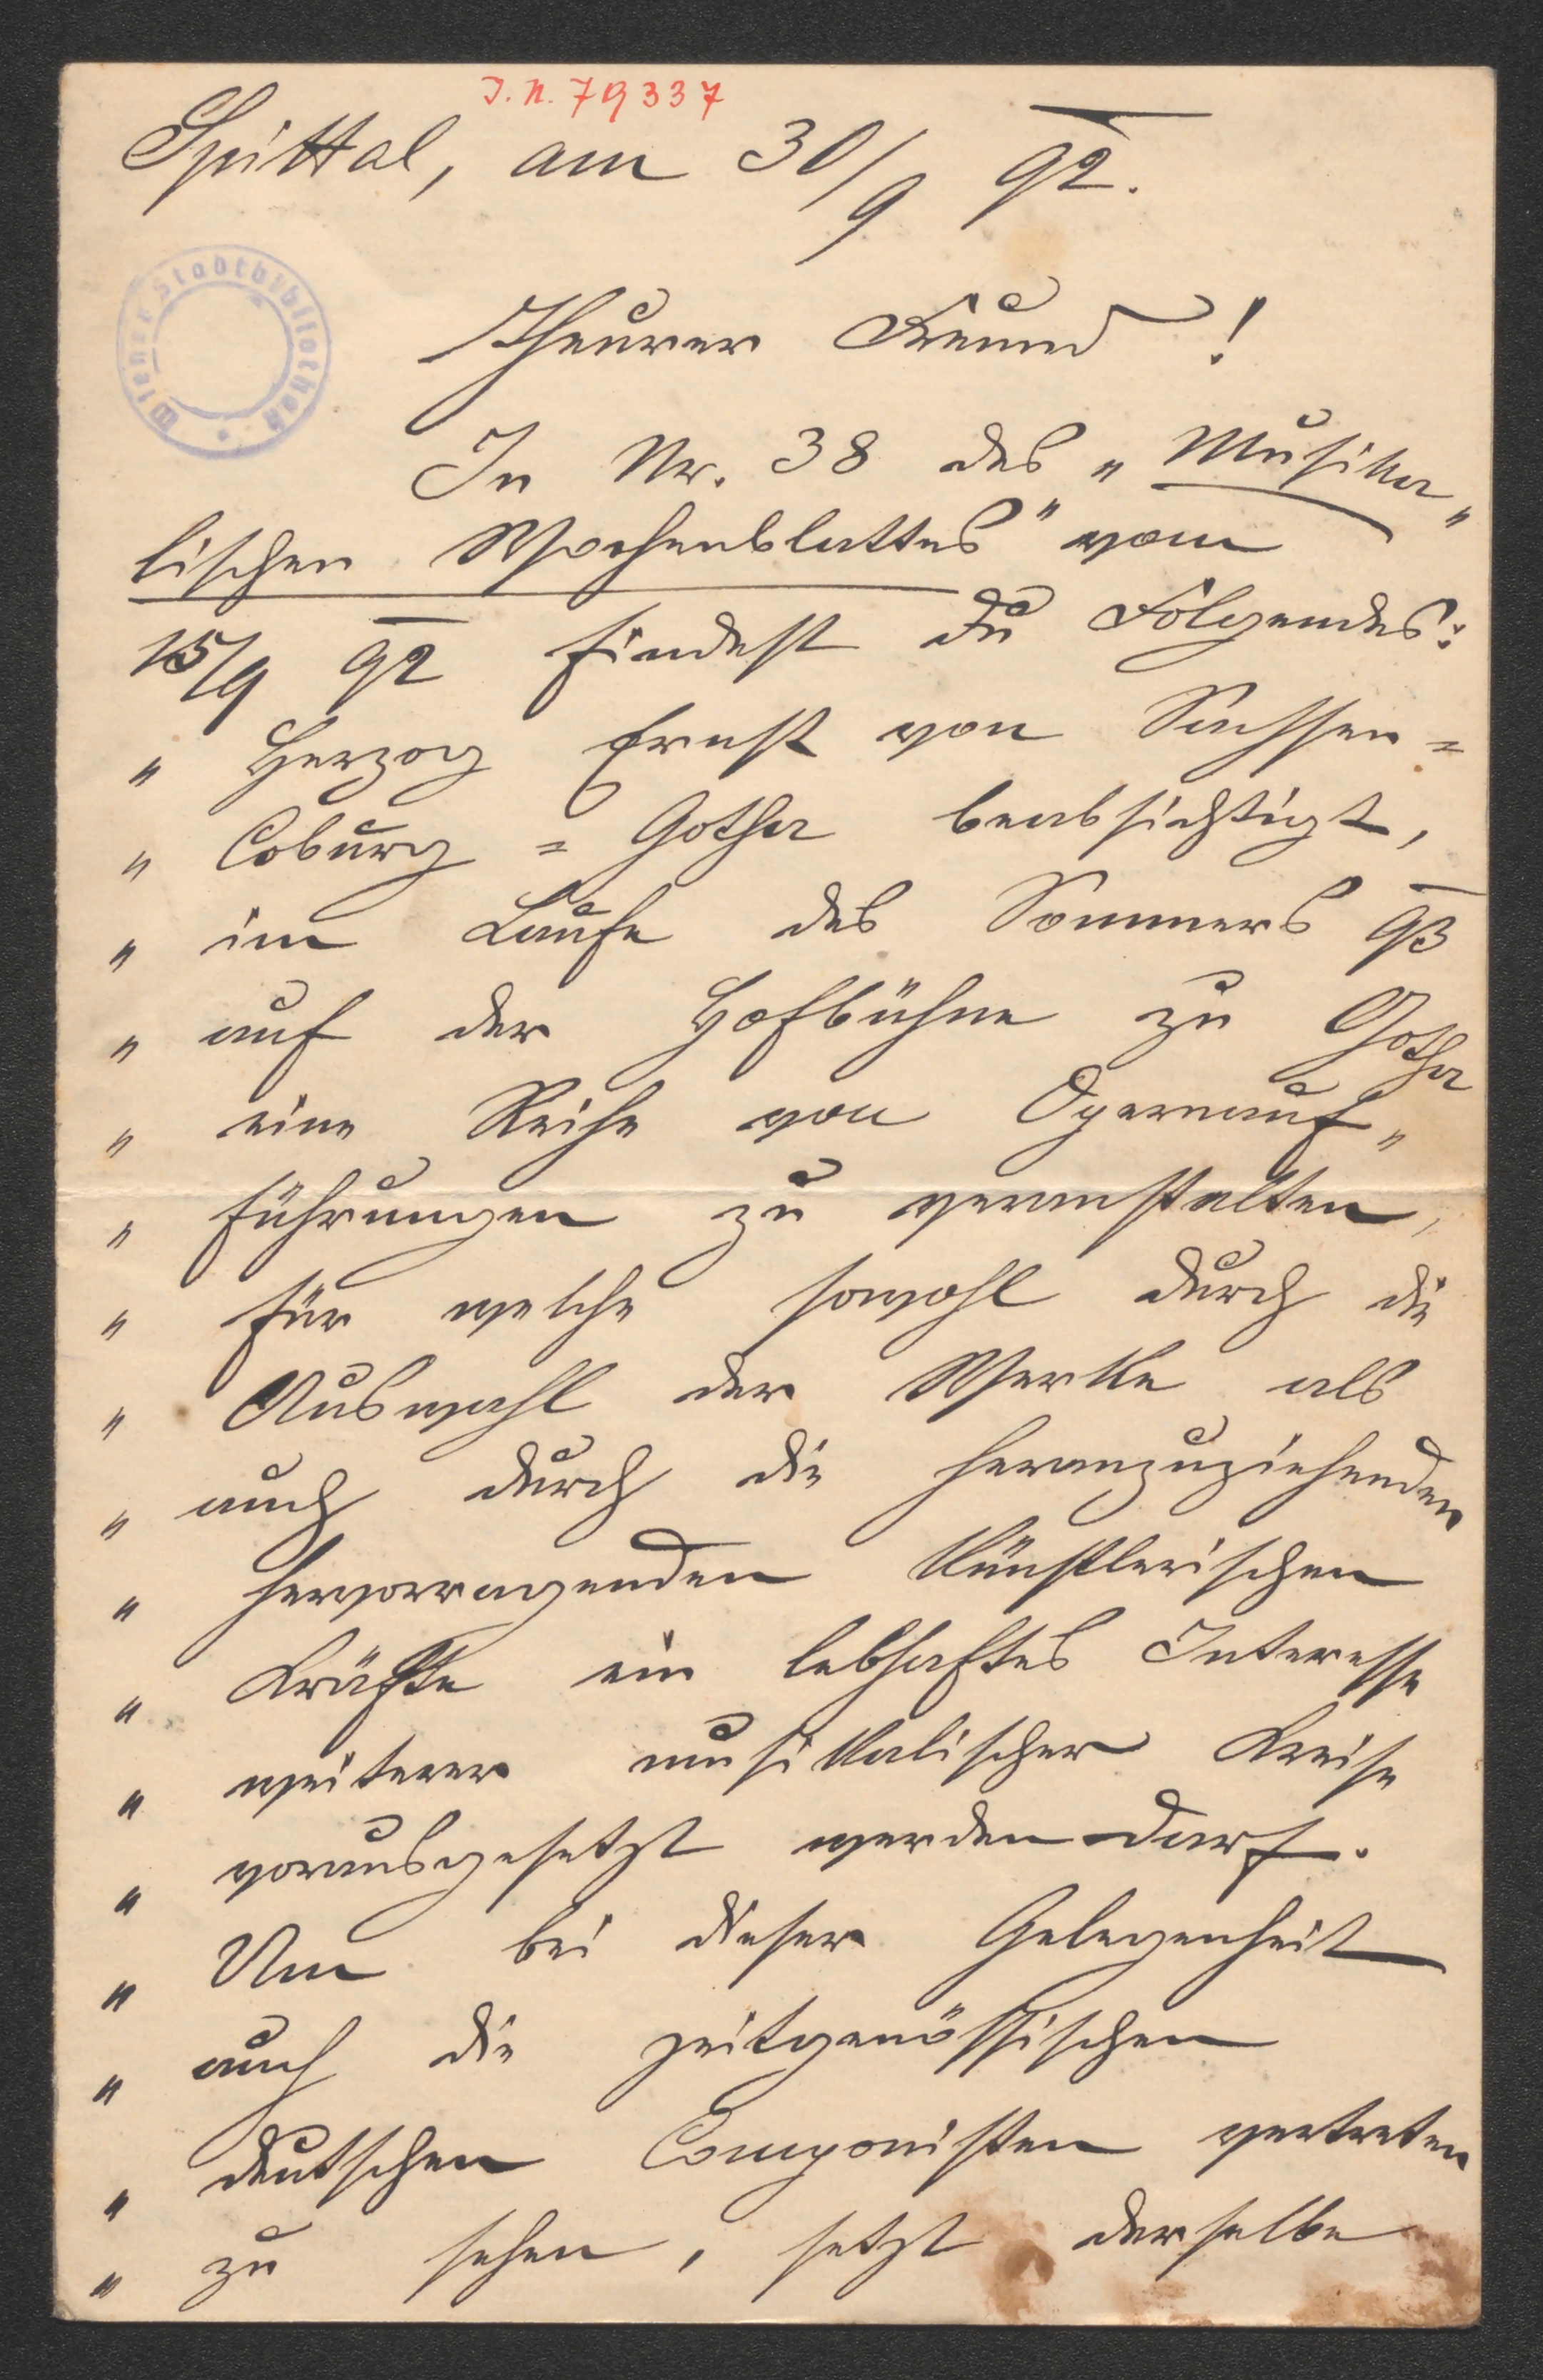 J.N. 79337
Spittal, am 30/9 92.
Wiener Stadtbibliothek
Theurer Freund!
In Nr. 38 des „Musika„
lischen Wochenblattes" vom
15/9 92 findest du Folgendes:
„ Herzog Ernst von Sachsen=
„ Coburg = Gotha beabsichtigt,
„ im Laufe des Sommers 93
„ auf der Hofbühne zu Gotha
„ eine Reihe von Opernauf„
„ führungen zu veranstalten,
„ für welche sowohl durch die
„ Auswahl der Werke als
„ auch durch die heranzuziehenden
„ hervorragenden künstlerischen
„ Kräfte ein lebhaftes Interesse
„ weiterer musikalischer Kreise
„ vorausgesetzt werden darf.
„ Um bei dieser Gelegenheit
„ auch die zeitgenössischen
„ deutschen Componisten vertreten
„ zu sehen, setzt derselbe